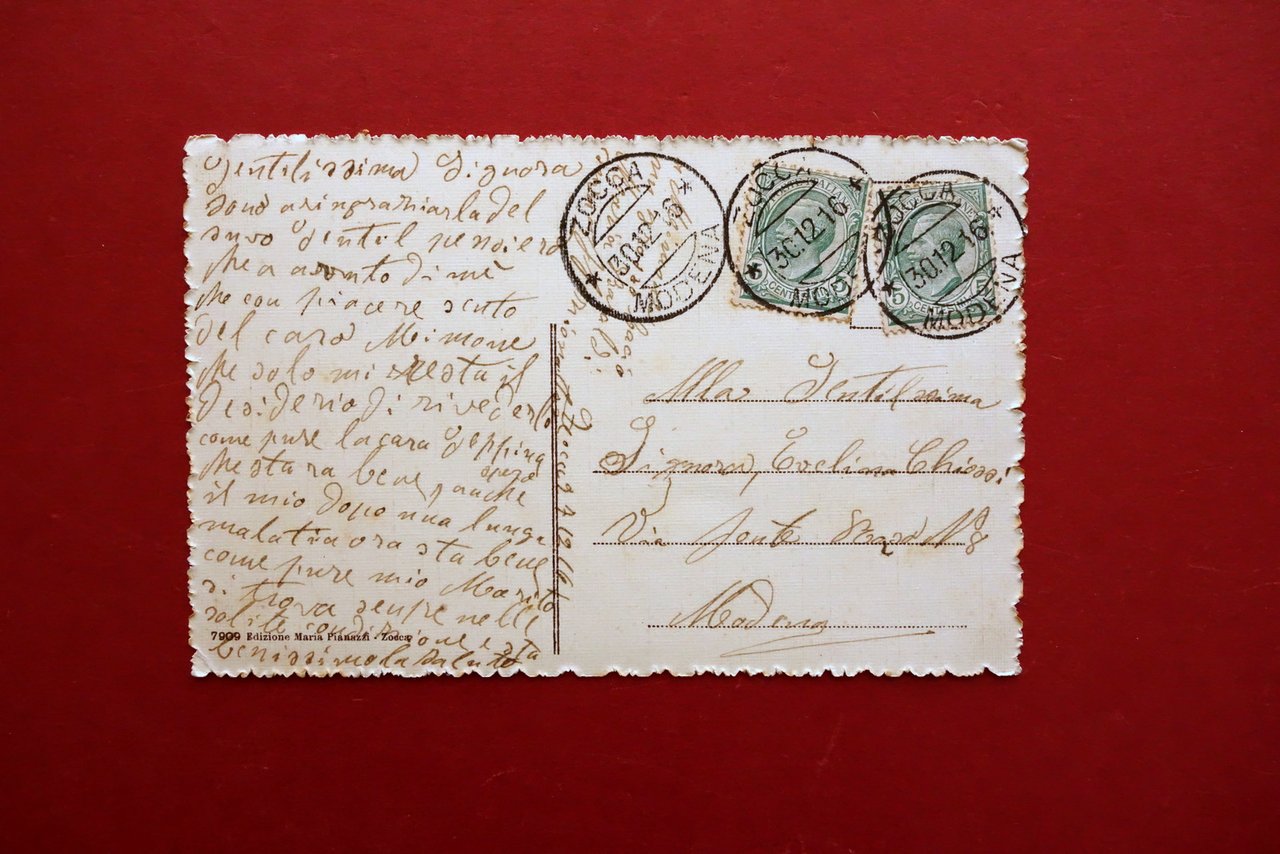 Gentilissima Signora
sono a ringraziarla del
suvo Gentil pensiero
che a avuto di me
che con piacere sento
del caro Mimone
che solo mi resta il
desiderio di rivederlo
come pure la cara Geppina
che stara bene spero
il mio dopo una lunga
malattia ora sta bene
come pure mio Marito
si trova senpre nelle
solite condizione e sta
benissimo la saluto
7909 Edizione Maria Pianazzi - Zocca
ZOCCA
30.12.16
MODENA
ZOCCA
30.12.16
MODENA
5 CENT 5
ZOCCA
30.12.16
MODENA
5 CENT 5
Alla Gentilssima
Signora Evelina Chiossi
Via Fonte N 8
Modena